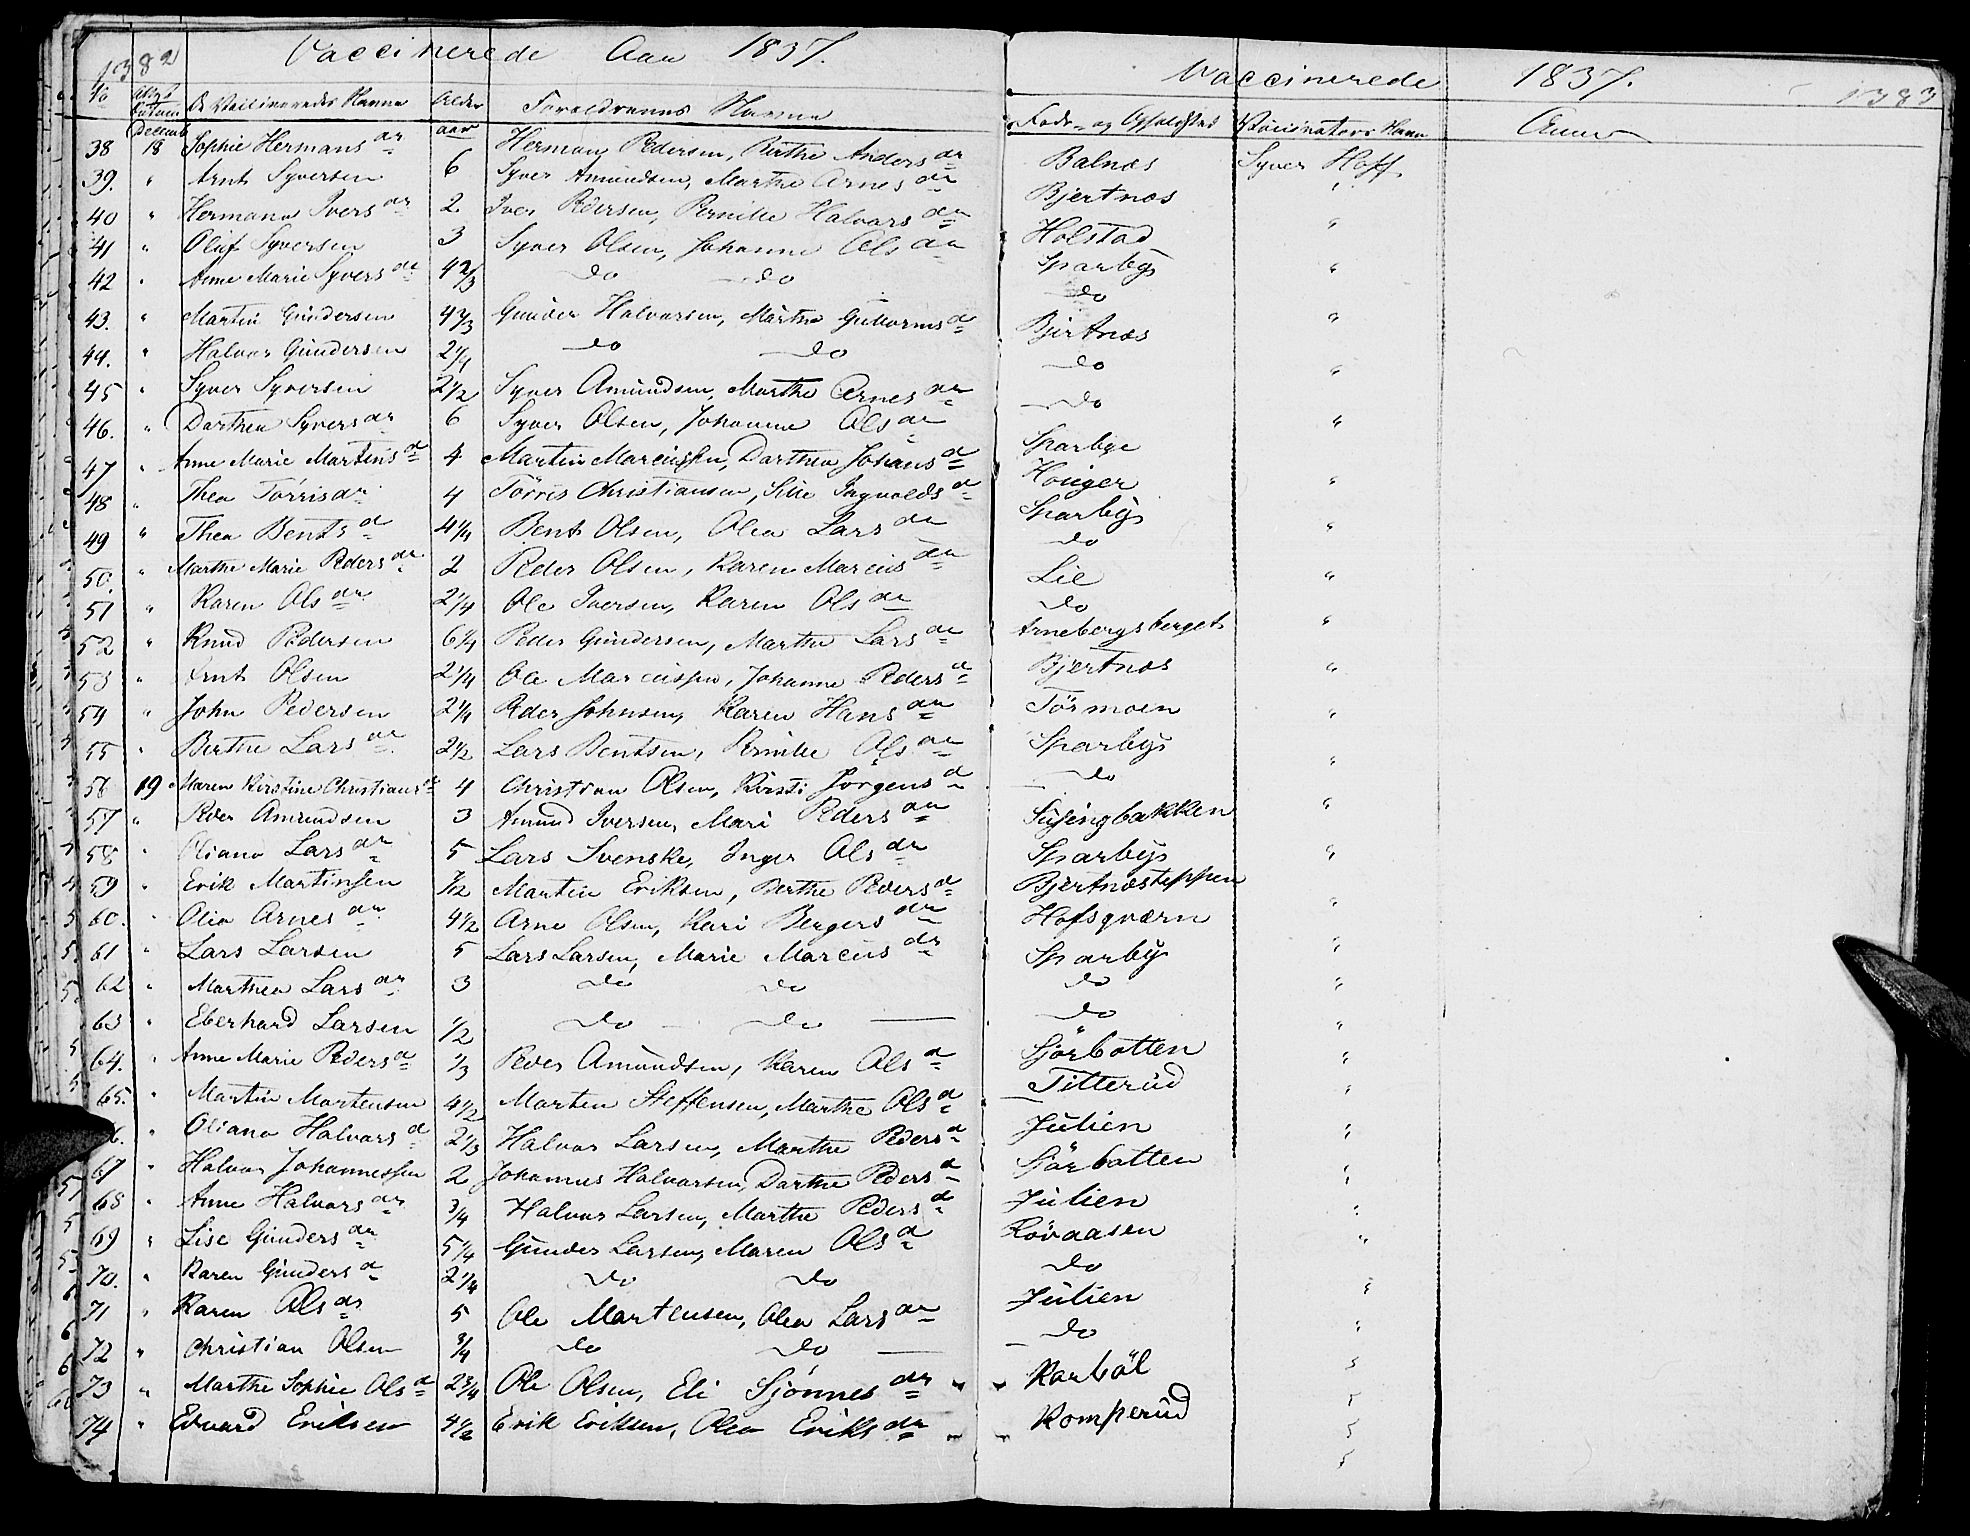 1382 Vaccinerede Aar 1837. Vaccinerede 1837. 1383
No Datum De Vaccineredes Navne Alder Forældrenes Navne Føde- og Opholdsted Vaccinators Navn Anm
Decemb aar
38 18 Sophie Hermans dr 6 Herman Pedersen, Berthe Anders dr Balnæs Syver Hoff
39. " Arnt Syversen Syver Amundsen, Marthe Arnes dr Bjertnæs "
40 " Hermana Ivers dr 2 Iver Pedersen, Pernille Halvars dr Holstad "
41 " Oluf Syversen 3 Syver Olsen, Johanne Ols dr Sparby "
42 " Anne Marie Syvers dr 4 2/3 do do do "
43. " Martin Gundersen 4 2/3 Gunder Halvorsen, Marthe Guttorms d Bjertnæs "
44. " Halvor Gundersen 2 1/4 do do do "
45 " Syver Syversen 2 1/2 Syver Amundsen, Marthe Arnes dr do "
46. " Darthea Syvers dr 6 Syver Olsen, Johanne Ols dr Sparbye "
47 " Anne Marie Martins d 4 Martin Marcussen, Darthea Johans d Houger "
48 " Thea Törris dr 4 Törris Christiansen, Silie Ingvolds d Sparby "
49 " Thea Bents d 4 1/4 Bent Olsen, Olea Lars dr do "
50. " Marthe Marie Peders dr 2 Peder Olsen, Karen Marcus dr Lie "
51 " Karen Ols dr 2 1/4 Ole Iversen, Karen Ols dr do "
52 " Knud Pedersen 6 1/4 Peder Gundersen, Marthe Lars dr Arnebergsberget "
53 " Arnt Olsen 2 1/4 Ole Marcussen, Johanne Peders d Bjertnæs "
54 " John Pedersen 2 1/4 Peder Johnsen, Karen Hans dr Törmoen "
55 " Berthe Lars dr 2 1/2 Lars Bentsen, Pernille Ols dr Sparby "
56 19 Maren Kirstine Christians d 4 Christian Olsen, Kirsti Jörgens d do "
57 " Peder Amundsen 3 Amund Iversen, Mari Peders dr bakken "
58 " Oliana Lars dr 5 Lars Svenske, Inger Ols dr Sparby "
59 " Erik Martinsen 1/2 Martin Eriksen, Berthe Peders d Bjertnæsteppen "
60. " Olia Arnes dr 4 1/2 Arne Olsen, Kari Bergers dr Hofsqværn "
61 " Lars Larsen 5 Lars Larsen, Marie Marcus dr Sparby "
62 " Marthea Lars dr 3 do do do "
63 " Eberhard Larsen 1/2 do do do "
64. " Anne Marie Peders d 1/3 Peder Amundsen, Karen Ols d Sjörbotten "
65. " Martin Mortensen 4 1/2 Morten Steffensen, Marthe Ols d Titterud "
6. " Oliana Halvors d 2 1/3 Halvor Larsen, Marthe Peders d Julien "
67 " Halvor Johannessen 2 Johannes Halvorsen, Darthe Peders d Sjörbotten "
68 " Anne Halvors dr 3/4 Halvor Larsen, Marthe Peders d Julien "
69 " Lise Gunders dr 5 1/4 Gunder Larsen, Maren Ols d Rövaasen "
70. " Karen Gunders d 2 1/4 do do do "
71 " Karen Ols dr 5 Ole Mortensen, Olea Lars dr Julien "
72 " Christian Olsen 3/4 do do do "
73 " Marthe Sophie Ols d 2 3/4 Ole Olsen, Eli Sjönnes dr Karböl "
74 " Edvard Eriksen 4 1/2 Erik Eriksen, Olea Eriks dr Komperud "